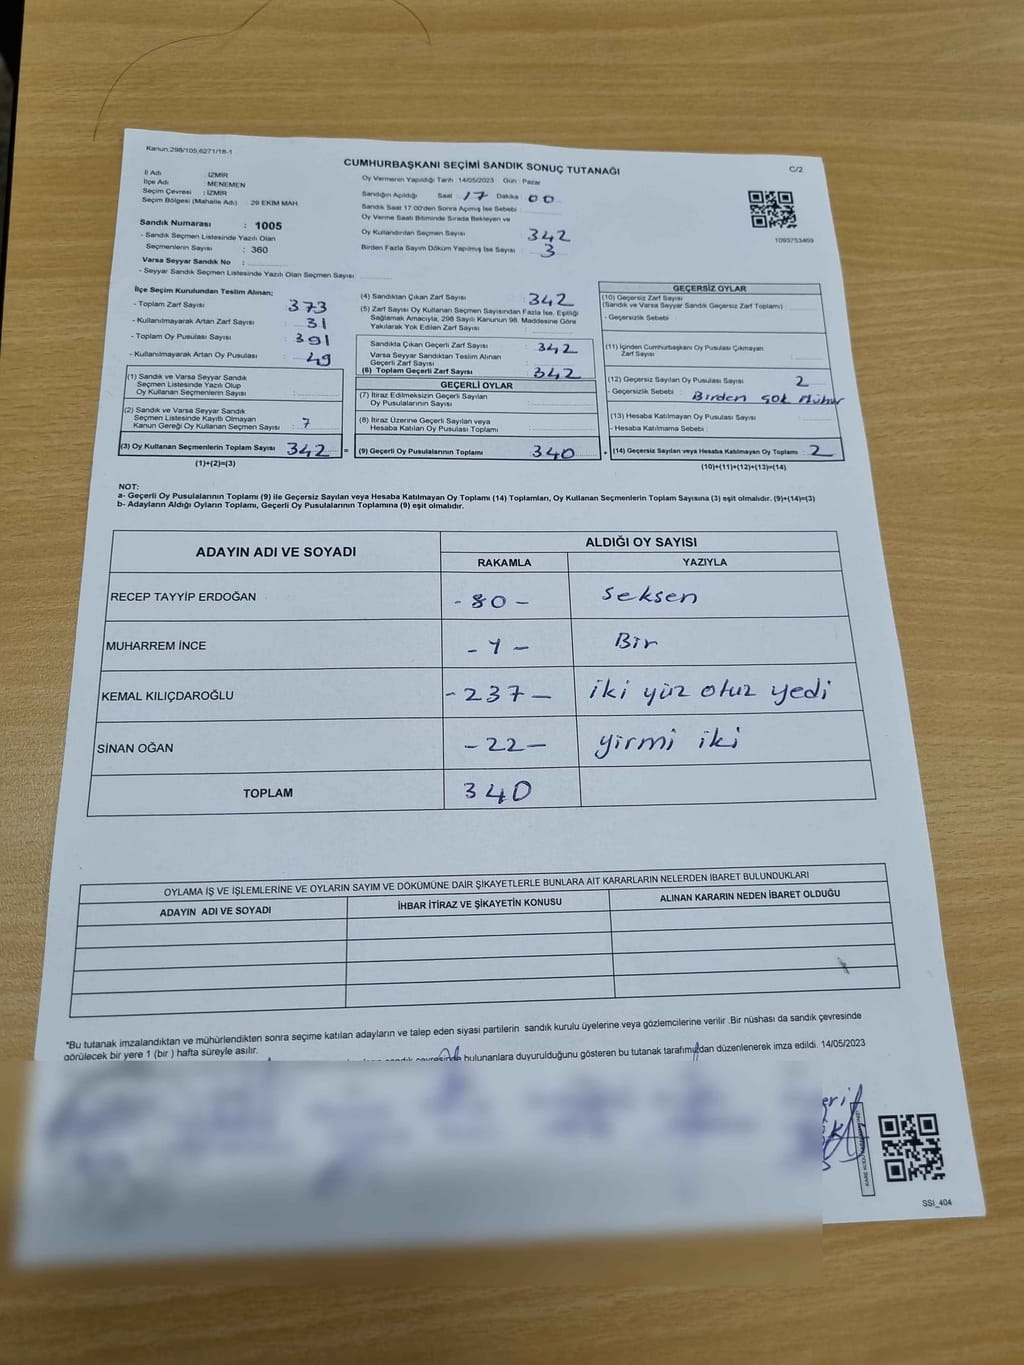 Kanun:298/105,6271/18-1
CUMHURBAŞKANI SEÇİMİ SANDIK SONUÇ TUTANAĞI
C/2
İl Adı : İZMİR
İlçe Adı : MENEMEN
Seçim Çevresi : İZMİR
Seçim Bölgesi (Mahalle Adı) : 29 EKİM MAH.
Sandık Numarası : 1005
- Sandık Seçmen Listesinde Yazılı Olan
Seçmenlerin Sayısı : 360
Varsa Seyyar Sandık No :
- Seyyar Sandık Seçmen Listesinde Yazılı Olan Seçmen Sayısı:
Oy Vermenin Yapıldığı Tarih : 14/05/2023 Gün : Pazar
Sandığın Açıldığı Saat : 17 Dakika 00
Sandık Saat 17.00'den Sonra Açımış İse Sebebi
Oy Verme Saati Bitiminde Sırada Bekleyen ve
Oy Kullandırılan Seçmen Sayısı : 342
Birden Fazla Sayım Döküm Yapılmış İse Sayısı : 3
1093753469
İlçe Seçim Kurulundan Teslim Alınan;
- Toplam Zarf Sayısı : 373
- Kullanılmayarak Artan Zarf Sayısı : 31
- Toplam Oy Pusulası Sayısı : 391
- Kullanılmayarak Artan Oy Pusulası : 49
(1) Sandık ve Varsa Seyyar Sandık
Seçmen Listesinde Yazılı Olup
Oy Kullanan Seçmenlerin Sayısı :
(2) Sandık ve Varsa Seyyar Sandık
Seçmen Listesinde Kayıtlı Olmayan
Kanun Gereği Oy Kullanan Seçmen Sayısı : 7
(3) Oy Kullanan Seçmenlerin Toplam Sayısı : 342 =
(1)+(2)=(3)
(4) Sandıktan Çıkan Zarf Sayısı : 342
(5) Zarf Sayısı Oy Kullanan Seçmen Sayısından Fazla İse, Eşitliği
Sağlamak Amacıyla, 298 Sayılı Kanunun 98. Maddesine Göre
Yakılarak Yok Edilen Zarf Sayısı :
Sandıkta Çıkan Geçerli Zarf Sayısı : 342
Varsa Seyyar Sandıktan Teslim Alınan
Geçerli Zarf Sayısı :
(6) Toplam Geçerli Zarf Sayısı : 342
GEÇERLİ OYLAR
(7) İtiraz Edilmeksizin Geçerli Sayılan
Oy Pusulalarının Sayısı :
(8) İtiraz Üzerine Geçerli Sayılan veya
Hesaba Katılan Oy Pusulası Toplamı :
(9) Geçerli Oy Pusulalarının Toplamı : 340 +
GEÇERSİZ OYLAR
(10) Geçersiz Zarf Sayısı
(Sandık ve Varsa Seyyar Sandık Geçersiz Zarf Toplamı) :
- Geçersizlik Sebebi :
(11) İçinden Cumhurbaşkanı Oy Pusulası Çıkmayan
Zarf Sayısı :
(12) Geçersiz Sayılan Oy Pusulası Sayısı : 2
- Geçersizlik Sebebi : Birden çok Mühür
(13) Hesaba Katılmayan Oy Pusulası Sayısı :
- Hesaba Katılmama Sebebi :
(14) Geçersiz Sayılan veya Hesaba Katılmayan Oy Toplamı : 2
(10)+(11)+(12)+(13)=(14)
NOT:
a- Geçerli Oy Pusulalarının Toplamı (9) ile Geçersiz Sayılan veya Hesaba Katılmayan Oy Toplamı (14) Toplamları, Oy Kullanan Seçmenlerin Toplam Sayısına (3) eşit olmalıdır. (9)+(14)=(3)
b- Adayların Aldığı Oyların Toplamı, Geçerli Oy Pusulalarının Toplamına (9) eşit olmalıdır.
ADAYIN ADI VE SOYADI
ALDIĞI OY SAYISI
RAKAMLA
YAZIYLA
RECEP TAYYİP ERDOĞAN - 80 - Seksen
MUHARREM İNCE - 1 - Bir
KEMAL KILIÇDAROĞLU - 237 - iki yüz otuz yedi
SİNAN OĞAN - 22 - yirmi iki
TOPLAM 340
OYLAMA İŞ VE İŞLEMLERİNE VE OYLARIN SAYIM VE DÖKÜMÜNE DAİR ŞİKAYETLERLE BUNLARA AİT KARARLARIN NELERDEN İBARET BULUNDUKLARI
ADAYIN ADI VE SOYADI
İHBAR İTİRAZ VE ŞİKAYETİN KONUSU
ALINAN KARARIN NEDEN İBARET OLDUĞU
*Bu tutanak imzalandıktan ve mühürlendikten sonra seçime katılan adayların ve talep eden siyasi partilerin sandık kurulu üyelerine veya gözlemcilerine verilir .Bir nüshası da sandık çevresinde
görülecek bir yere 1 (bir ) hafta süreyle asılır.
bulunanlara duyurulduğunu gösteren bu tutanak tarafımızdan düzenlenerek imza edildi. 14/05/2023
SSI_404